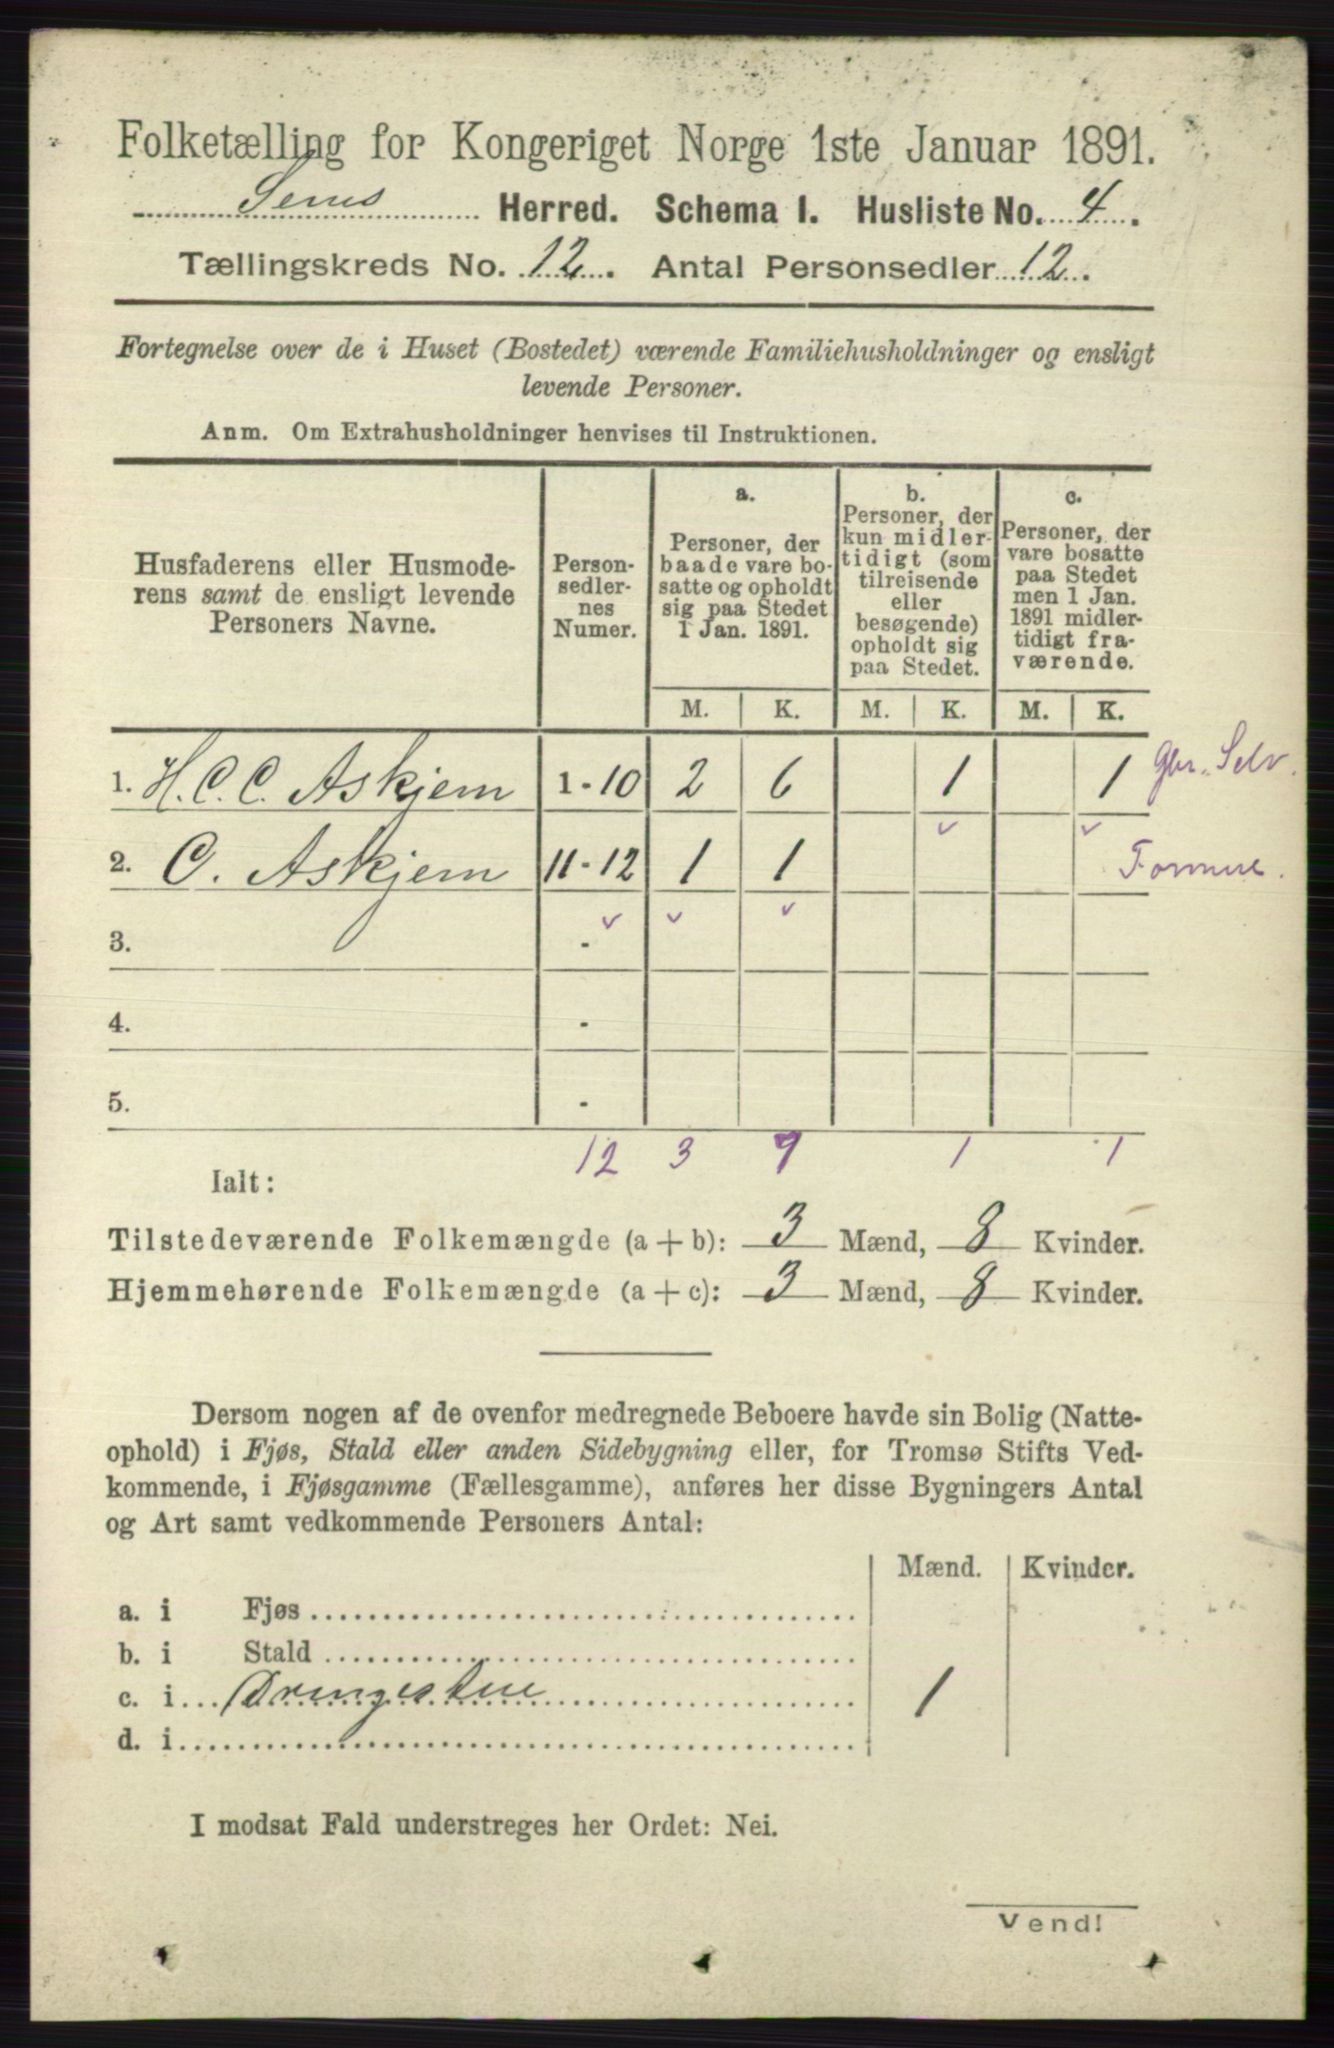 Folketælling for Kongeriget Norge 1ste Januar 1891.
Sems Herred. Schema 1. Husliste No. 4.
Tællingskreds No. 12. Antal Personsedler 12.
Fortegnelse over de i Huset (Bostedet) værende Familiehusholdninger og ensligt
levende Personer.
Anm. Om Extrahusholdninger henvises til Instruktionen.
Husfaderens eller Husmode-
rens samt de ensligt levende
Personers Navne.
Person-
sedler-
nes
Numer.
a.
Personer, der
baade vare bo-
satte og opholdt
sig paa Stedet
1 Jan. 1891.
b.
Personer, der
kun midler-
tidigt (som
tilreisende
eller
besøgende)
opholdt sig
paa Stedet.
c.
Personer, der
vare bosatte
paa Stedet
men 1 Jan.
1891 midler-
tidigt fra-
værende.
M. K. M. K. M. K.
1. H. C. C. Askjem 1-10 2 6 1 1 Gbr. Selv.
2. C. Askjem 11-12 1 1
3. -
4. -
5. -
12 3 7 1 1
Ialt:
Tilstedeværende Folkemængde (a + b): 3 Mænd, 8 Kvinder.
Hjemmehørende Folkemængde (a + c): 3 Mænd, 8 Kvinder.
Dersom nogen af de ovenfor medregnede Beboere havde sin Bolig (Natte-
ophold) i Fjøs, Stald eller anden Sidebygning eller, for Tromsø Stifts Ved-
kommende, i Fjøsgamme (Fællesgamme), anføres her disse Bygningers Antal
og Art samt vedkommende Personers Antal:
Mænd. Kvinder.
a. i Fjøs
b. i Stald
c. i Drengestue 1
d. i
I modsat Fald understreges her Ordet: Nei.
Vend!